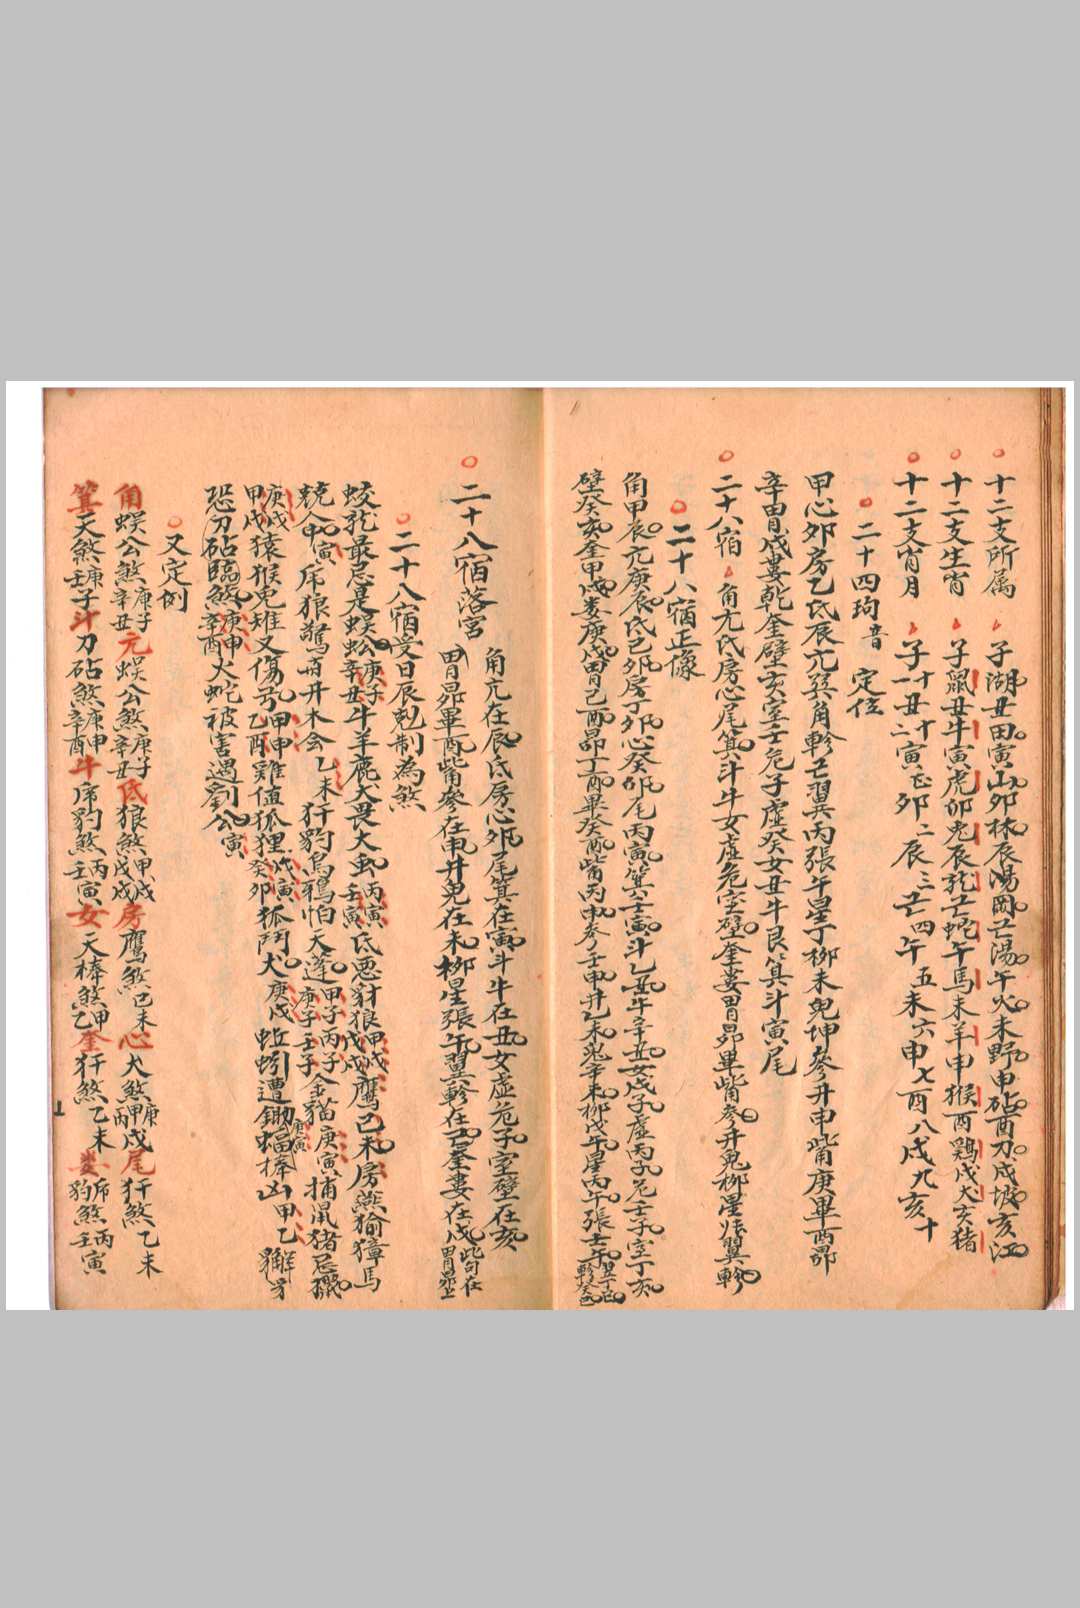 十二支所属 子湖丑田寅山卯林辰湯岡巳湯午火未野申砧酉刀戌坡亥江
十二支生肖 子鼠丑牛寅虎卯兎辰龍巳蛇午馬未羊申猴酉鷄戌犬亥猪
十二支肖月 子十一丑十二寅正卯二辰三巳四午五未六申七酉八戌九亥十
二十四 音 定位
甲心卯房乙氐辰亢巽角軫巳翼丙張午星丁柳未鬼坤參井申觜庚畢酉昴
辛胃戌婁乾奎壁亥室壬危子虛癸女丑牛艮箕斗寅尾
二十八宿 角亢氐房心尾箕斗牛女虛危室壁奎婁胃昴畢觜參井鬼柳星張翼軫
二十八宿正像
角甲辰亢庚辰氐乙卯房丁卯心癸卯尾丙寅箕壬寅斗乙丑牛辛丑女戊子虛丙子危壬子室丁亥
壁癸亥奎甲戌婁庚戌胃己酉昴丁酉畢癸酉觜丙申參壬申井乙未鬼辛未柳戊午星丙午張壬午翼丁巳軫癸巳
二十八宿落宮 角亢在辰氐房心卯尾箕在寅斗牛在丑女虛危子室壁在亥
胃昴畢酉觜參在申井鬼在未柳星張午翼軫在巳奎婁在戌此句在胃昴上
二十八宿受日辰剋制為煞
蛟龍最忌是蜈蚣庚子辛丑牛羊鹿犬畏大虫丙寅壬寅氐惡豺狼甲戌戊戌鷹己未房燕獝獐馬
競入申寅虎狼驚奇井木会乙未犴豹烏鴉怕天蓬甲子丙子庚子壬子金猫庚寅捕鼠猪忌獵
甲戌庚戌猿猴兎雉又傷弓甲申乙酉雞値狐狸戊寅癸卯狐鬥犬庚戌蚯蚓遭鋤庚寅蝠棒凶甲乙獬
恐刀砧臨煞庚申辛酉火蛇被害遇劉公寅
又定例
角蜈公煞庚子辛丑亢蜈公煞庚子辛丑氐狼煞甲戌戊戌房鷹煞己未心犬煞庚甲丙戌尾犴煞乙未
箕天煞庚壬子斗刀砧煞庚申辛酉牛虎豹煞丙寅壬寅女天棒煞甲乙奎犴煞乙未婁虎豹煞丙壬寅